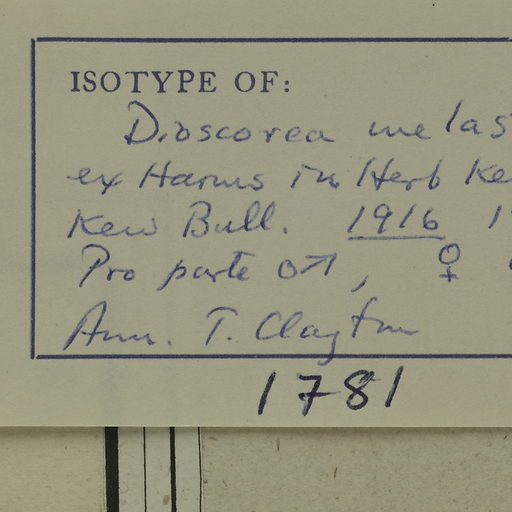 ISOTYPE OF:
Dioscorea melas
ex Harms in Herb Ke
Kew Bull. 1916 1
Pro parte ♂, ♀
Ann. T. Clayton
1781